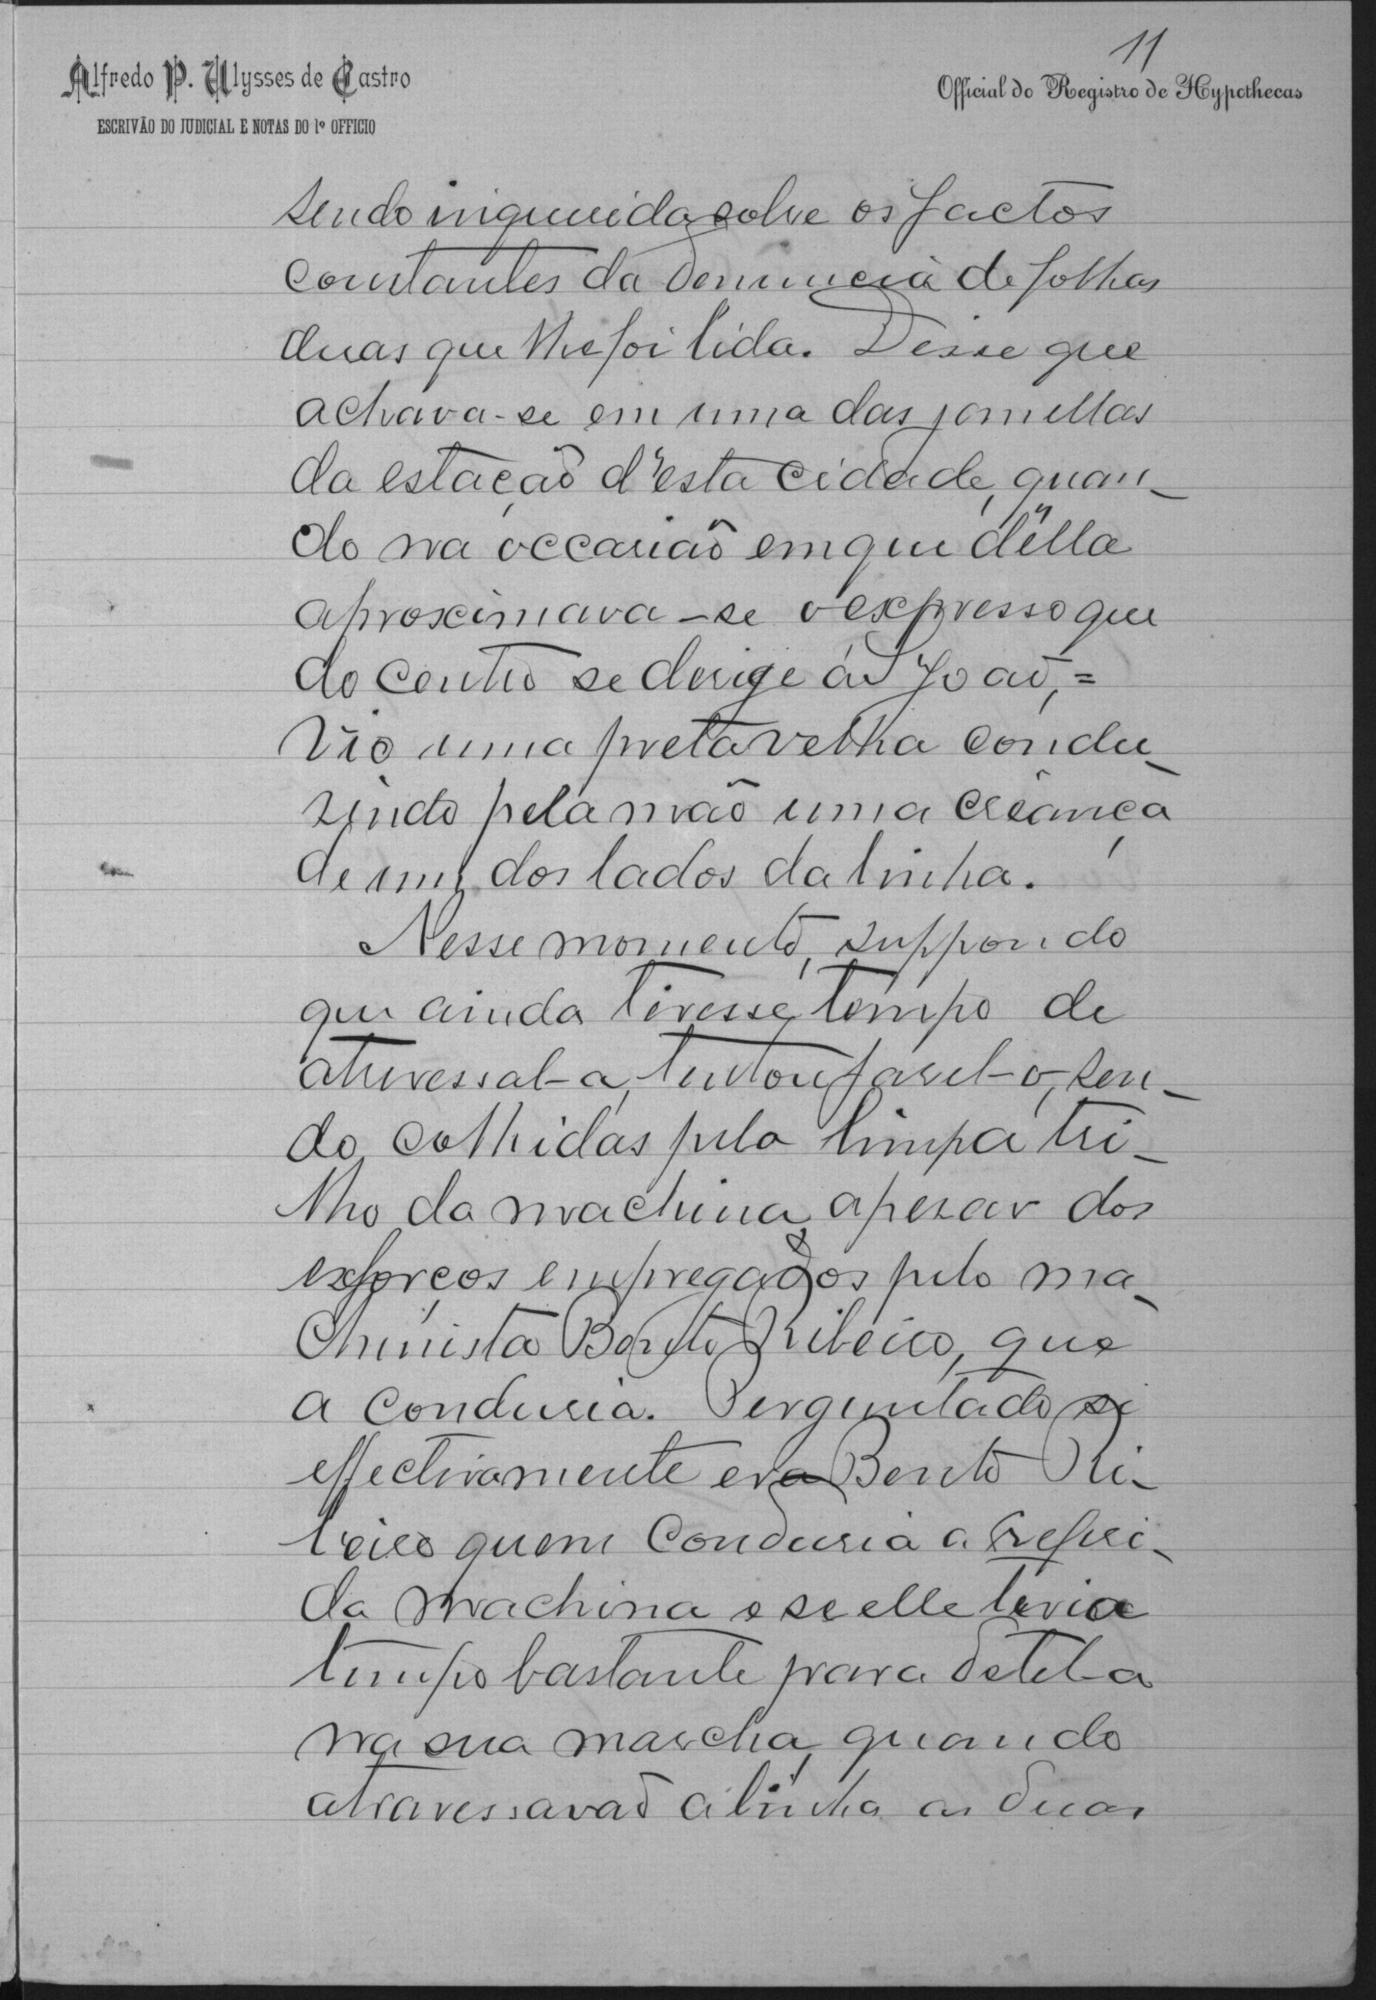 11
Alfredo P. Ulysses de Castro
Official do Registro de Hypothecas
ESCRIVÃO DO JUDICIAL E NOTAS DO 1º OFFICIO
sendo inquirida sobre os factos
constantes da denuncia de folhas
duas que lhe foi lida. Disse que
achava-se em uma das janellas
da estação d'esta cidade, quan-
do na occasião em que d'ella
aproximava-se o expresso que
do centro se dirige á S João,=
vio uma preta velha condu-
zindo pela mão uma criança
de um dos lados da linha.
Nesse momento, suppondo
que ainda tivesse tempo de
atravessal-a, tentou fasel-o, sen-
do colhidas pelo limpa tri-
lho da machina, apezar dos
exforços empregados pelo ma-
chinista Bento Ribeiro, que
a condusia. Perguntado si
effectivamente era Bento Ri-
beiro quem condusia a referi-
da machina e se elle teria
tempo bastante para detel-a
na sua marcha, quando
atravessavaõ a linha as duas